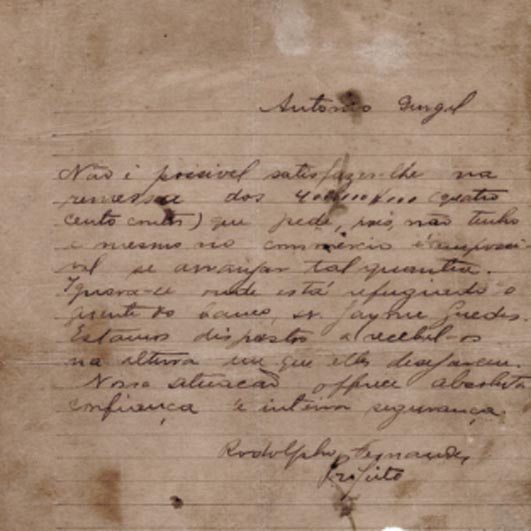 Antonio Gurgel
Não é possivel satisfazer-lhe na
remessa dos 400:000$000 (quatro
centos contos) que pede, pois, não tenho
e mesmo no commercio é impossi-
vel se arranjar tal quantia.
Ignora-se onde está refugiado o
gerente do Banco, sr. Jayme Guedes.
Estamos dispostos a recebel-os
na altura em que elles desejarem.
Nossa situação offerece absoluta
confiança e inteira segurança.
Rodolpho Fernandes
Prefeito